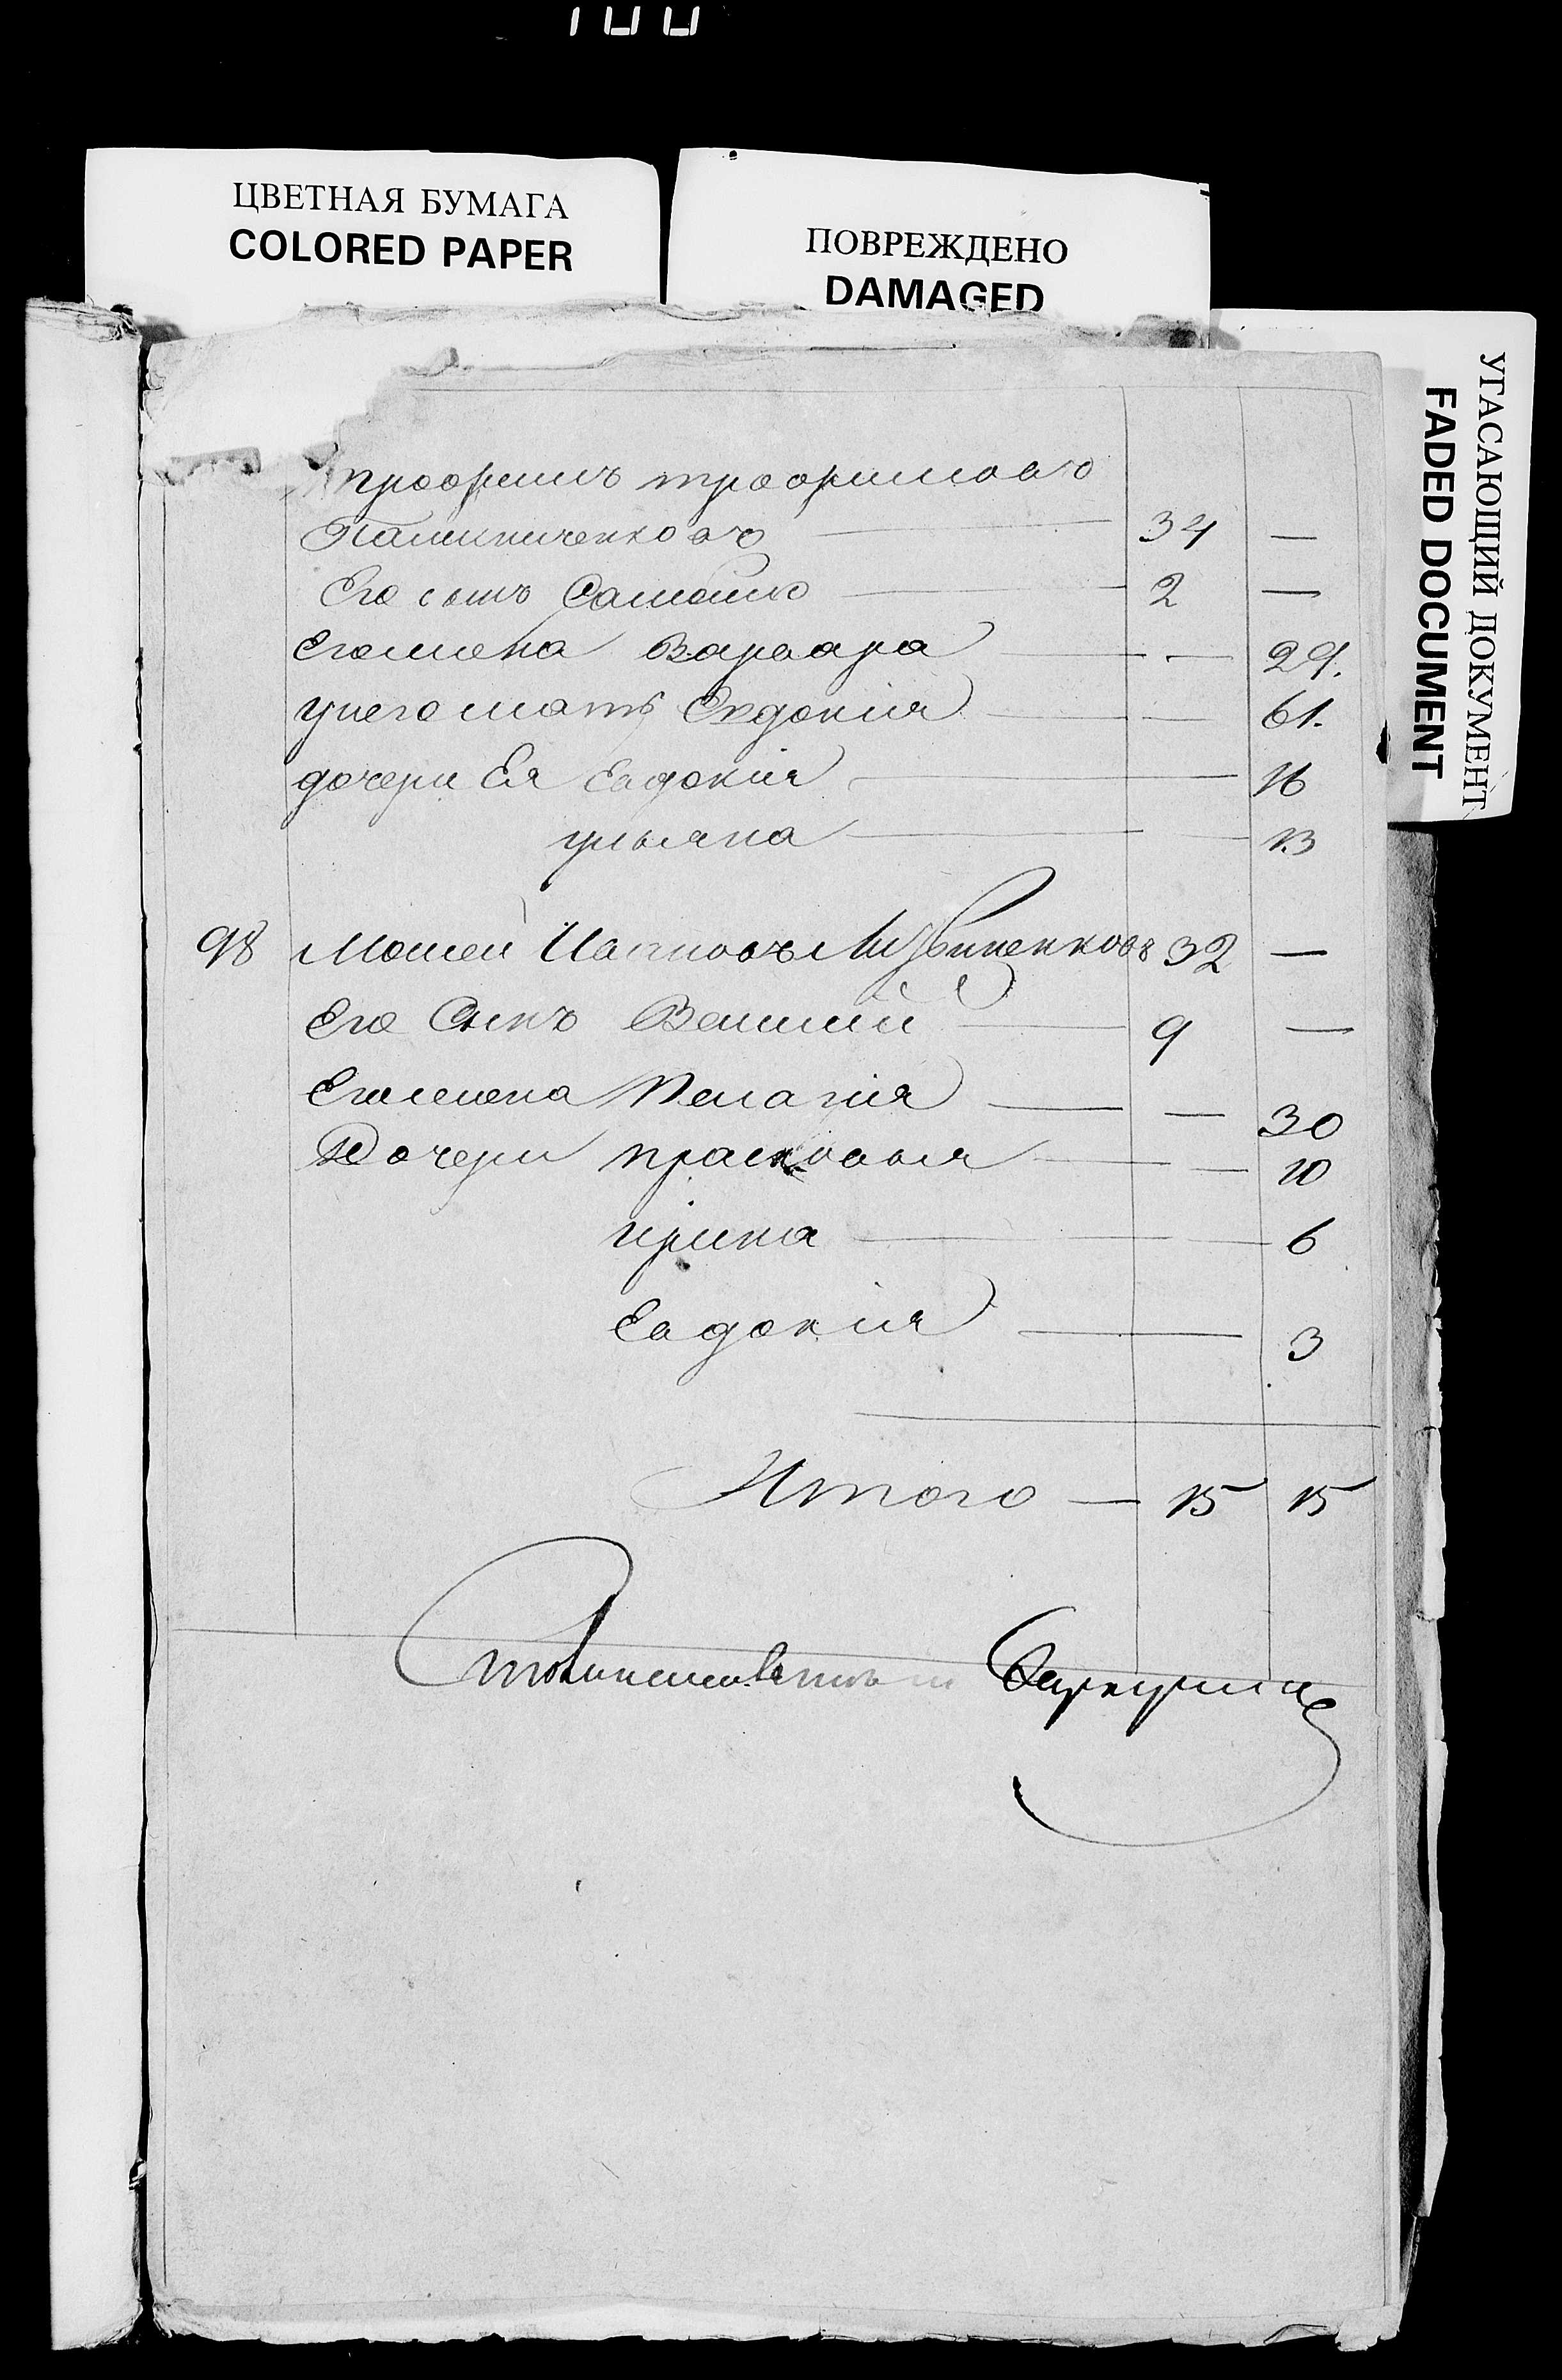 ЦВЕТНАЯ БУМАГА
COLORED PAPER
ПОВРЕЖДЕНО
DAMAGED
УГАСАЮЩИЙ ДОКУМЕНТ
FADED DOCUMENT
трофимъ трофимовъ
34 —
Его сынъ Самойло 2 —
Его жена Варвара — 29.
у него мать Евдокия — 61.
дочери Ея Евдокия — 16
ульяна — 13
98 Мосей Ивановъ 32 —
Его Сынъ 9 —
Его жена Пелагия — 30
Дочери прасковья — 10
ирина — 6
Евдокия — 3
Итого — 15 15